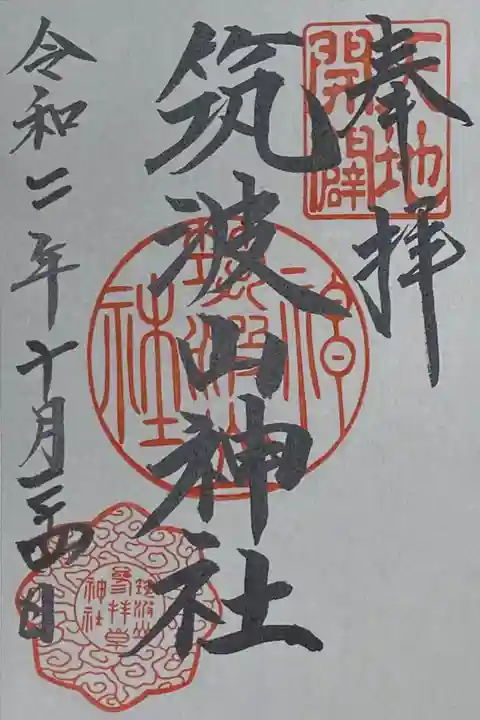 奉拝
天地
開闢
筑波山神社
筑波山
神社
令和二年十月二十四日
筑波山
参拝章
神社